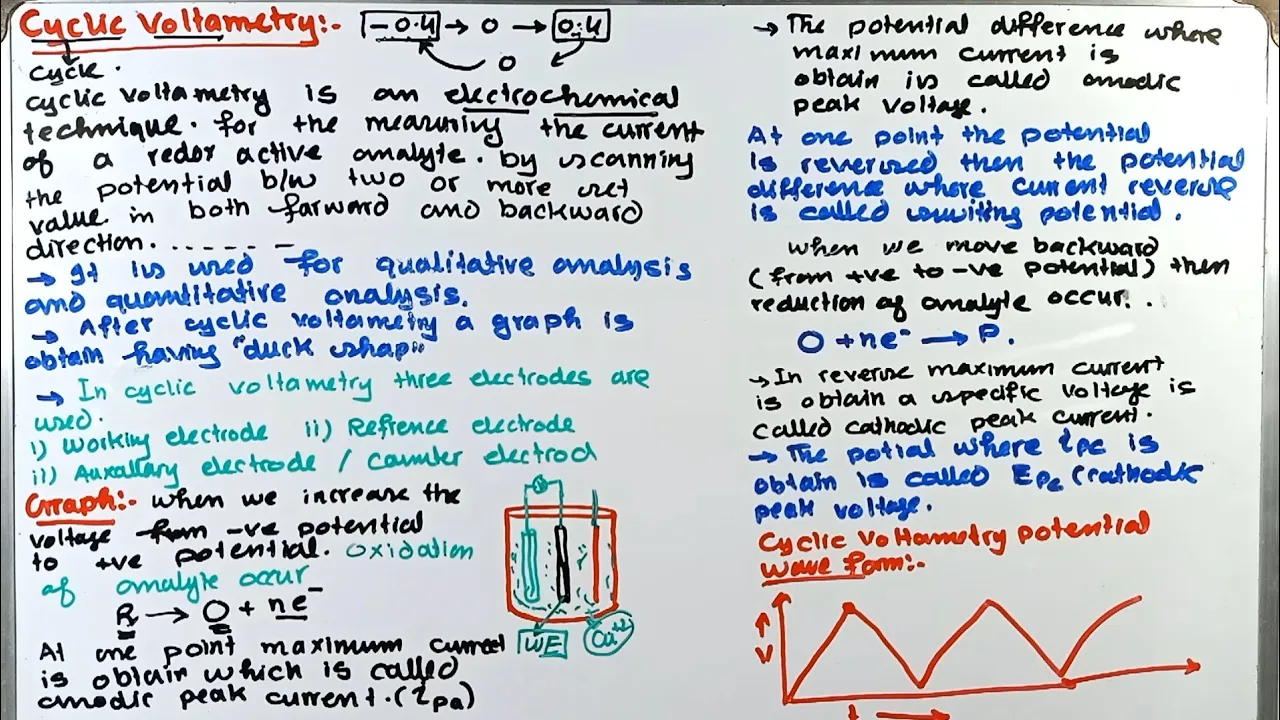 Cyclic Voltametry:- -0.4 → 0 → 0.4
0
cycle.
cyclic voltametry is an electrochemical
technique. for the measuring the current
of a redox active analyte. by scanning
the potential b/w two or more set
value in both farward and backward
direction. ------ -
→ It is used for qualitative analysis
and quantitative analysis.
→ After cyclic voltametry a graph is
obtain having "duck shap"
→ In cyclic voltametry three electrodes are
used.
i) Working electrode ii) Refrence electrode
ii) Auxallary electrode / Counter electrod
Graph:- when we increase the
voltage from -ve potential
to +ve potential. Oxidation
of analyte occur
R → O + ne⁻
At one point maximum current
is obtain which is called
anodic peak current. (ipa)
WE
Cu⁺²
→ The potential difference where
maximum current is
obtain is called anodic
peak voltage.
At one point the potential
is reversed then the potential
difference where current reverse
is called switing potential.
when we move backward
(from +ve to -ve potential) then
reduction of analyte occur.
O + ne⁻ → P.
→ In reverse maximum current
is obtain a specific voltage is
called cathodic peak current.
→ The potial where ipc is
obtain is called Epc (cathodic
peak voltage.
Cyclic Voltametry potential
wave form:-
V →
t →